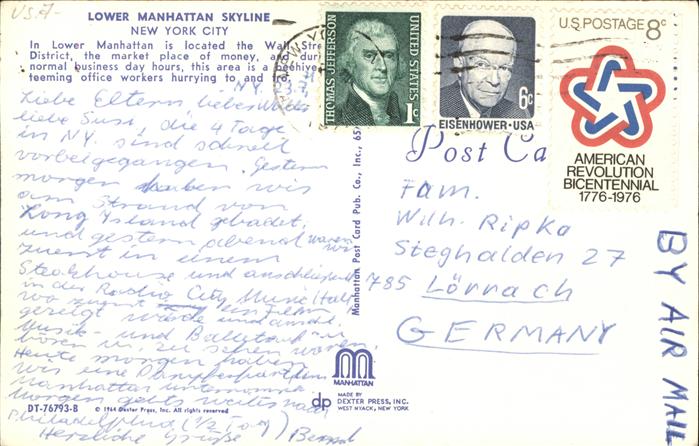 USA-
LOWER MANHATTAN SKYLINE
NEW YORK CITY
In Lower Manhattan is located the Wall Stre
District, the market place of money, and duri
normal business day hours, this area is a beehive
teeming office workers hurrying to and
N.Y. 23.7.
Liebe Eltern, lieber
liebe Susi, die 4 Tage
in N.Y. sind schnell
vorbeigegangen. Gestern
morgen haben wir
am Strand von
Long Island gebadet,
und gestern abend waren wir
zuerst in einem
Steakhouse und anschließend
in der Radio City Music Hall,
wo zuerst ein Film
gezeigt wurde und anschl.
Musik- und
hören u. zu sehen waren.
Heute morgen haben
wir eine Dampferfahrt um
Manhattan unternommen.
Morgen gehts weiter nach
Philadelphia (1/2 Tag)
Herzliche Grüße Bernd
DT-76793-B © 1964 Dexter Press, Inc. All rights reserved
Manhattan Post Card Pub. Co., Inc., 65
MANHATTAN
dp MADE BY
DEXTER PRESS, INC.
WEST NYACK, NEW YORK
THOMAS JEFFERSON
UNITED STATES
1c
6c
EISENHOWER·USA
U.S. POSTAGE 8c
AMERICAN
REVOLUTION
BICENTENNIAL
1776-1976
Post Ca
Fam.
Wilh. Ripka
Steghalden 27
785 Lörrach
GERMANY
BY AIR MAIL